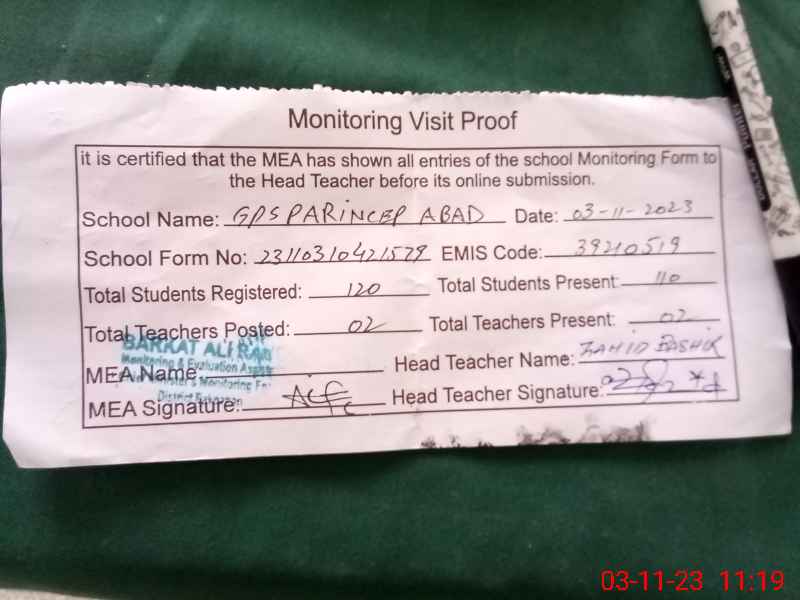 Monitoring Visit Proof
it is certified that the MEA has shown all entries of the school Monitoring Form to
the Head Teacher before its online submission.
School Name: GPS PARINCEP ABAD Date: 03-11-2023
School Form No: 23110310421579 EMIS Code: 39210519
Total Students Registered: 120 Total Students Present: 110
Total Teachers Posted: 02 Total Teachers Present: 02
BARKAT ALI
Monitoring & Evaluation
MEA Name: Head Teacher Name: ZAHID BASHIR
& Monitoring
District
MEA Signature: Head Teacher Signature:
03-11-23 11:19